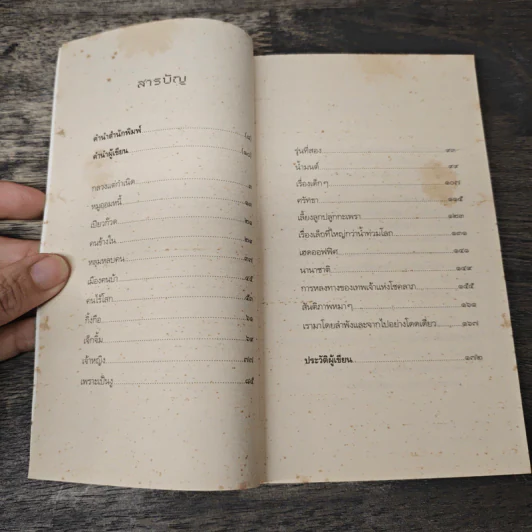 สารบัญ
คำนำสำนักพิมพ์
คำนำผู้เขียน
กลวงแต่กำเนิด ๑
หมูออมหนี้ ๑๐
เบี้ยวก๊วด ๒๑
คนข้างใน ๒๑
หลุมหลบคน ๓๗
เมืองคนบ้า ๔๕
คนไร้โลก ๕๓
กิ้งกือ ๖๑
เจ้าหญิง ๗๗
เพราะเป็นงู ๘๕
รุ่นที่สอง ๙๐
น้ำมนต์ ๙๙
เรื่องเด็กๆ ๑๐๗
ศรัทธา ๑๑๕
เลี้ยงลูกปลูกกะเพรา ๑๒๓
เรื่องเล็กที่ใหญ่กว่าน้ำท่วมโลก ๑๓๑
เฮดออฟฟิศ ๑๔๑
นานาชาติ ๑๔๙
การหลงทางของเทพเจ้าแห่งโชคลาภ ๑๕๕
สันติภาพหมาๆ ๑๖๑
เรามาโดยลำพังและจากไปอย่างโดดเดี่ยว ๑๖๗
ประวัติผู้เขียน ๑๗๒